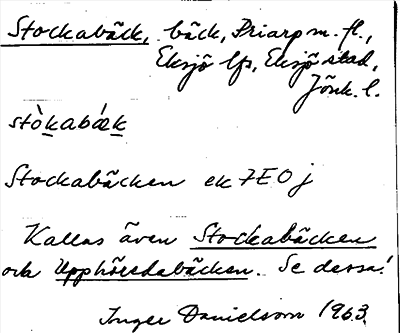 Stockabäck, bäck, Priarp m. fl.,
Eksjö lfs, Eksjö stad,
Jönk. l.
stòkabä́k
Stockabäcken ek 7E0j
Kallas även Stockabäcken
och Upphöredabäcken. Se dessa!
Inger Danielsson 1963.